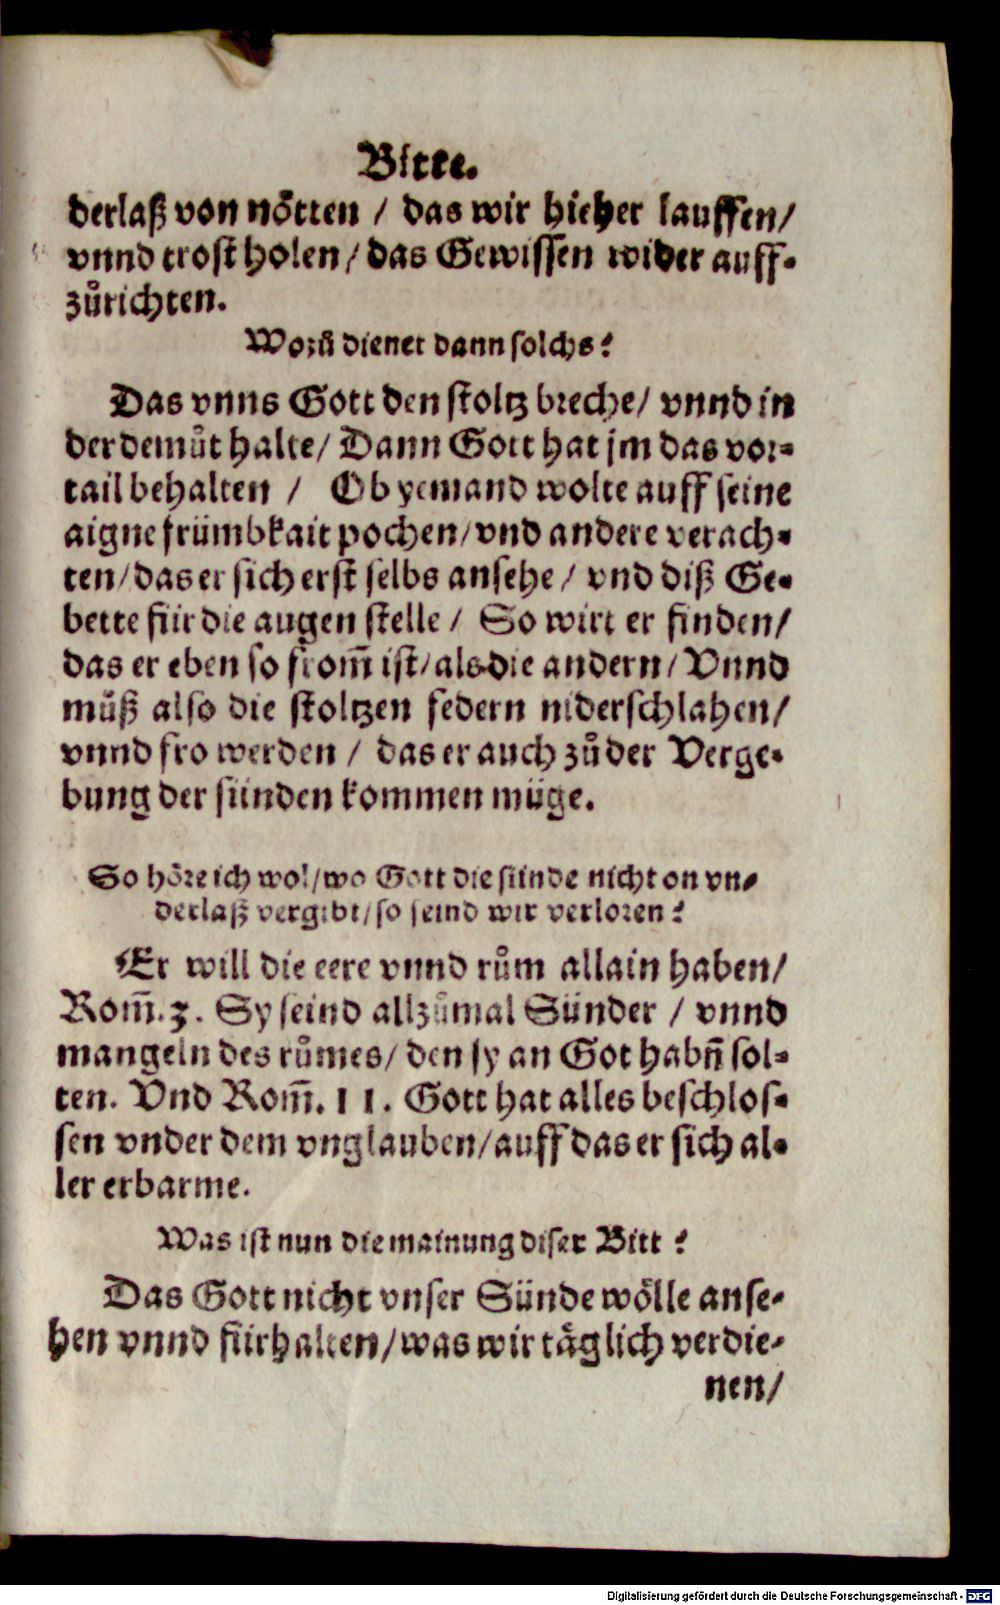 Bitte.
derlaß von nöttten / das wir hieher lauffen/
vnnd trost holen / das Gewissen wider auff-
zůrichten.
Wozů dienet dann solchs?
Das vnns Gott den stoltz breche / vnnd in
der demůt halte / Dann Gott hat jm das vor-
tail behalten / Ob yemand wolte auff seine
aigne frümbkait pochen / vnd andere verach-
ten / das er sich erst selbs ansehe / vnd diß Ge-
bette für die augen stelle / So wirt er finden /
das er eben so from̄ ist / als die andern / Vnnd
můß also die stoltzen federn niderschlahen /
vnnd fro werden / das er auch zů der Verge-
bung der sünden kommen müge.
So höre ich wol / wo Gott die sünde nicht on vn-
derlaß vergibt / so seind wir verloren?
Er will die eere vnnd rům allain haben /
Rom̄. 3. Sy seind allzůmal Sünder / vnnd
mangeln des růmes / den sy an Got habn̄ sol-
ten. Vnd Rom̄. 11. Gott hat alles beschlos-
sen vnder dem vnglauben / auff das er sich al-
ler erbarme.
Was ist nun die mainung diser Bitt?
Das Gott nicht vnser Sünde wölle anse-
hen vnnd fürhalten / was wir täglich verdie-
nen /
Digitalisierung gefördert durch die Deutsche Forschungsgemeinschaft - DFG